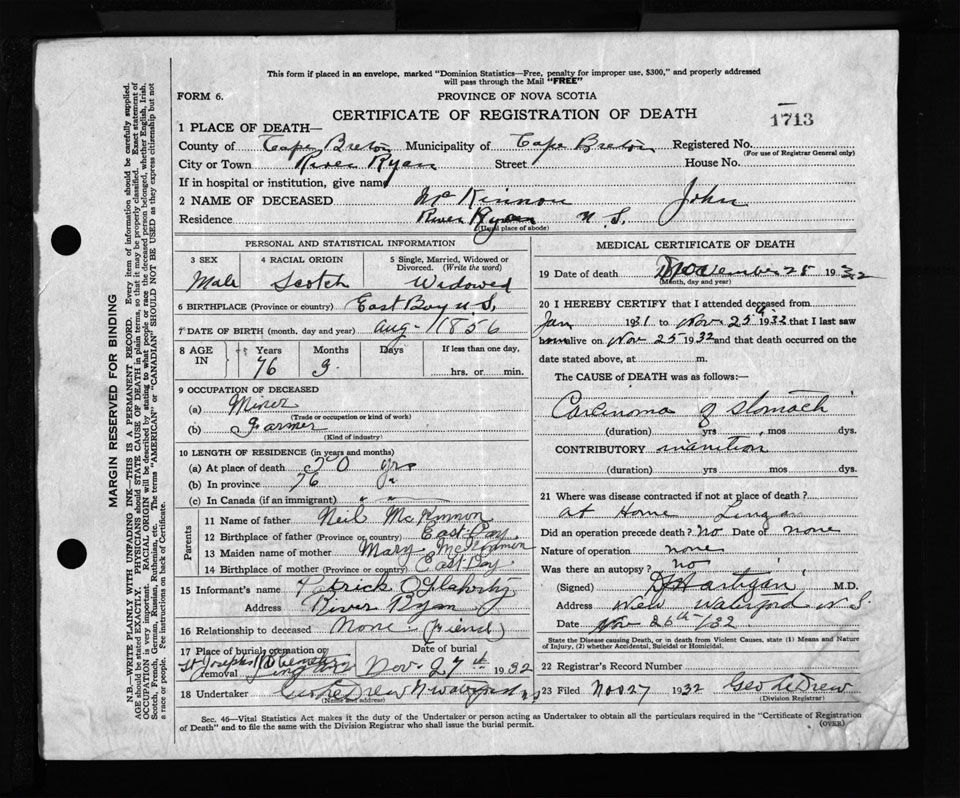 This form if placed in an envelope, marked "Dominion Statistics—Free, penalty for improper use, $300," and properly addressed
will pass through the Mail "FREE"
FORM 6. PROVINCE OF NOVA SCOTIA
CERTIFICATE OF REGISTRATION OF DEATH
1713
1 PLACE OF DEATH—
County of Cape Breton Municipality of Cape Breton Registered No.
(For use of Registrar General only)
City or Town River Ryan Street House No.
If in hospital or institution, give name
2 NAME OF DECEASED McKinnon John
Residence River Ryan N.S.
(Usual place of abode)
PERSONAL AND STATISTICAL INFORMATION
3 SEX 4 RACIAL ORIGIN 5 Single, Married, Widowed or
Divorced. (Write the word)
Male Scotch Widowed
6 BIRTHPLACE (Province or country) East Bay N.S.
7 DATE OF BIRTH (month, day and year) Aug - 1856
8 AGE IN Years Months Days If less than one day,
76 3 hrs. or min.
9 OCCUPATION OF DECEASED
(a) Miner
(Trade or occupation or kind of work)
(b) Farmer
(Kind of industry)
10 LENGTH OF RESIDENCE (in years and months)
(a) At place of death 50 yrs
(b) In province 76
(c) In Canada (if an immigrant) " "
Parents
11 Name of father Neil McKinnon
12 Birthplace of father (Province or country) East Bay
13 Maiden name of mother Mary McKinnon
14 Birthplace of mother (Province or country) East Bay
15 Informant's name Patrick O'Flaherty
Address River Ryan
16 Relationship to deceased None (Friend)
17 Place of burial, cremation or Date of burial
removal St Josephs Lingan Nov. 27th 1932
18 Undertaker
(Name and address)
MEDICAL CERTIFICATE OF DEATH
19 Date of death November 25 1932
(Month, day and year)
20 I HEREBY CERTIFY that I attended deceased from
Jan 1931 to Nov. 25th 1932 that I last saw
him alive on Nov 25 1932 and that death occurred on the
date stated above, at m.
The CAUSE of DEATH was as follows:—
Carcinoma of Stomach
(duration) yrs mos dys.
CONTRIBUTORY inanition
(duration) yrs mos dys.
21 Where was disease contracted if not at place of death?
At Home Lingan
Did an operation precede death? No Date of none
Nature of operation none
Was there an autopsy? no
(Signed) D Hartigan M.D.
Address New Waterford N.S.
Date Nov 26th /32
State the Disease causing Death, or in death from Violent Causes, state (1) Means and Nature
of Injury, (2) whether Accidental, Suicidal or Homicidal.
22 Registrar's Record Number
23 Filed Nov 27 1932 Geo LeDrew
(Division Registrar)
Sec. 46—Vital Statistics Act makes it the duty of the Undertaker or person acting as Undertaker to obtain all the particulars required in the "Certificate of Registration
of Death" and to file the same with the Division Registrar who shall issue the burial permit. (OVER)
MARGIN RESERVED FOR BINDING
N.B.—WRITE PLAINLY WITH UNFADING INK—THIS IS A PERMANENT RECORD. Every item of information should be carefully supplied.
AGE should be stated EXACTLY. PHYSICIANS should STATE CAUSE OF DEATH in plain terms, so that it may be properly classified. Exact statement of
OCCUPATION is very important. RACIAL ORIGIN will be described by stating to what people or race the deceased person belonged, whether English, Irish,
Scotch, French, German, Russian, Ruthenian, etc. The terms "AMERICAN" or "CANADIAN" SHOULD NOT BE USED as they express citizenship but not
a race or people. See instructions on back of Certificate.